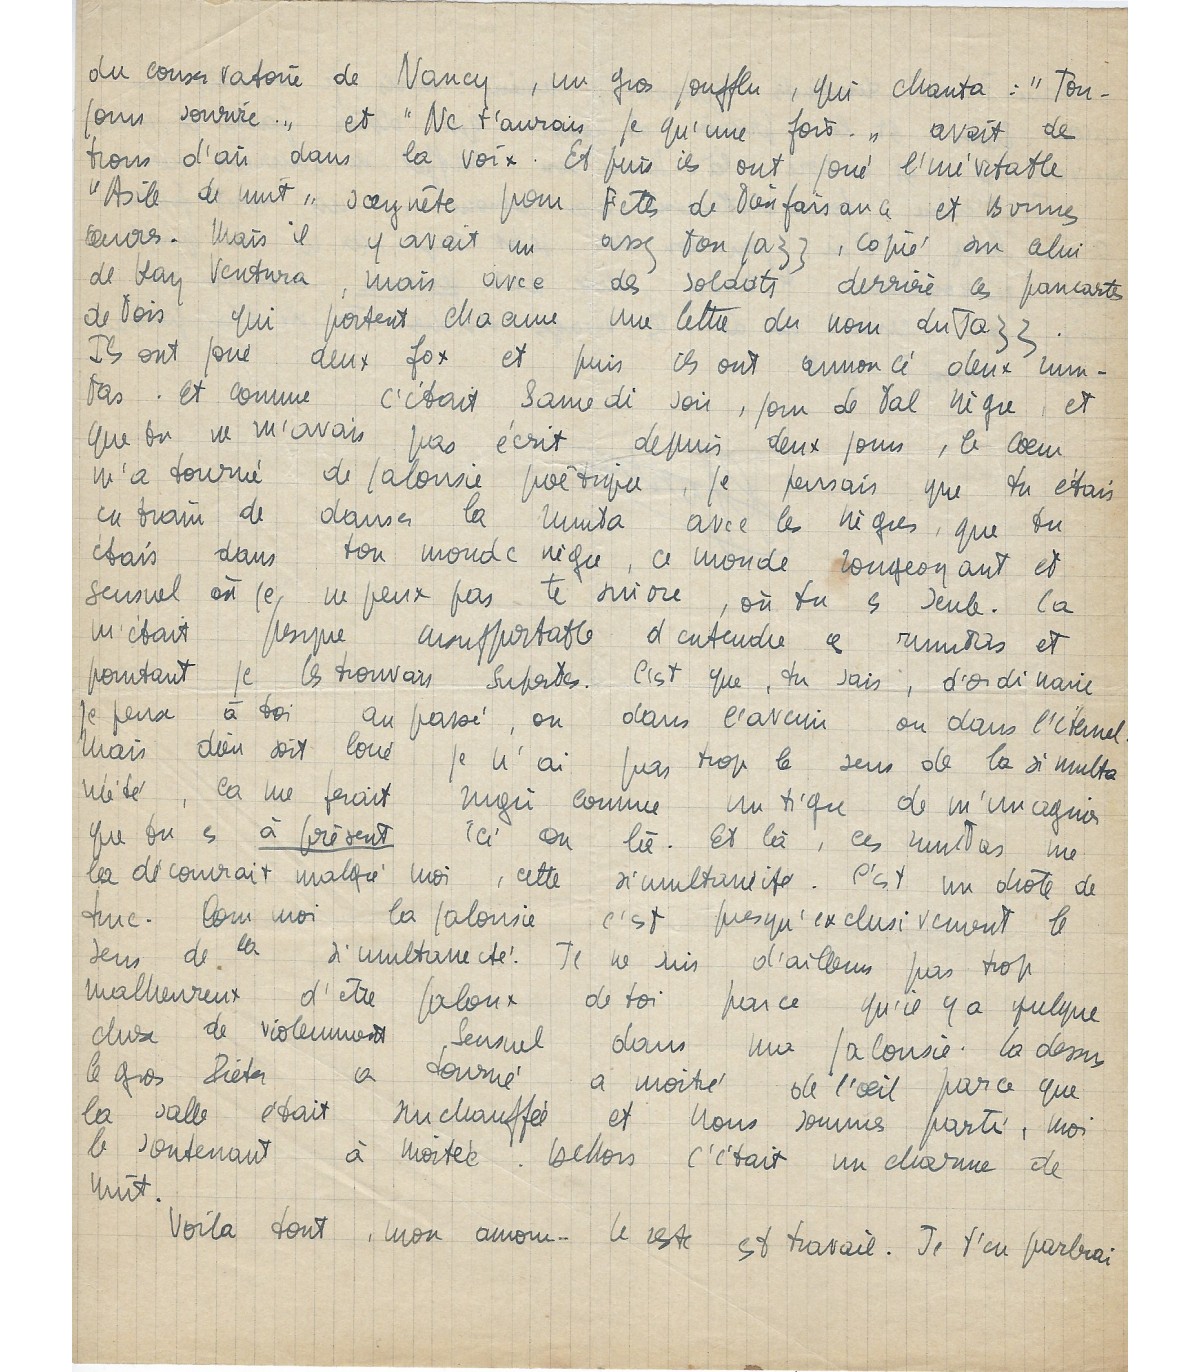 du conservatoire de Nancy, un gros joufflu, qui chanta : "Tou-
jours sourire.." et "Ne t'aurais je qu'une fois.." avait de
trous d'air dans la voix. Et puis ils ont joué l'inévitable
"Asile de nuit" saynête pour Fêtes de Bienfaisance et Bonnes
œuvres. Mais il y avait un assez bon jazz, copié sur celui
de Ray Ventura, mais avec des soldats derrière ces pancartes
de bois qui portent chacune une lettre du nom du Jazz.
Ils ont joué deux fox et puis ils ont annoncé deux rum-
bas. Et comme c'était Samedi soir, jour de Bal nègre, et
que tu ne m'avais pas écrit depuis deux jours, le cœur
m'a tourné de jalousie poêtique, je pensais que tu étais
en train de danser la rumba avec les nègres, que tu
étais dans ton monde nègre, ce monde rougeoyant et
sensuel où je ne peux pas te suivre, où tu es seule. Ca
m'était presque insupportable d'entendre ces rumbas et
pourtant je les trouvais superbes. C'est que, tu sais, d'ordinaire
je pense à toi au passé, ou dans l'avenir ou dans l'éternel.
Mais dieu soit loué je n'ai pas trop le sens de la simulta
néité, ca me ferait rugir comme un tigre de m'imaginer
que tu es à présent ici ou là. Et là, ces rumbas me
la découvrait malgré moi, cette simultanéité. C'est un drôle de
truc. Pour moi la jalousie c'est presqu'exclusivement le
sens de la simultanéité. Je ne suis d'ailleurs pas trop
malheureux d'être jaloux de toi parce qu'il y a quelque
chose de violemment sensuel dans ma jalousie. La dessus
le gros Pieter a tourné a moitié de l'œil parce que
la salle était surchauffée et nous sommes parti, moi
le soutenant à moitié. Dehors c'était un charme de
nuit.
Voila tout, mon amour.. le reste est travail. Je t'en parlerai